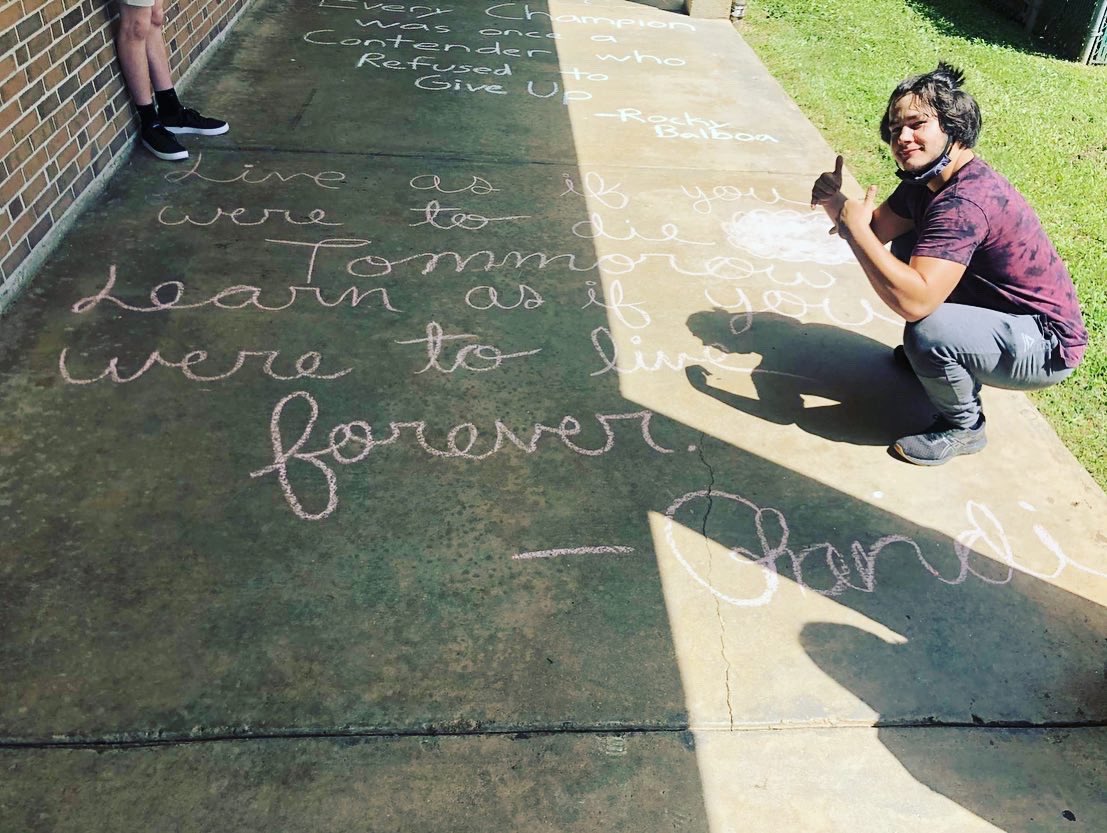 Every Champion
was once a
Contender who
Refused to
Give Up
-Rocky
Balboa
Live as if you
were to die
Tommorow
Learn as if you
were to live
forever.
- Ghandi